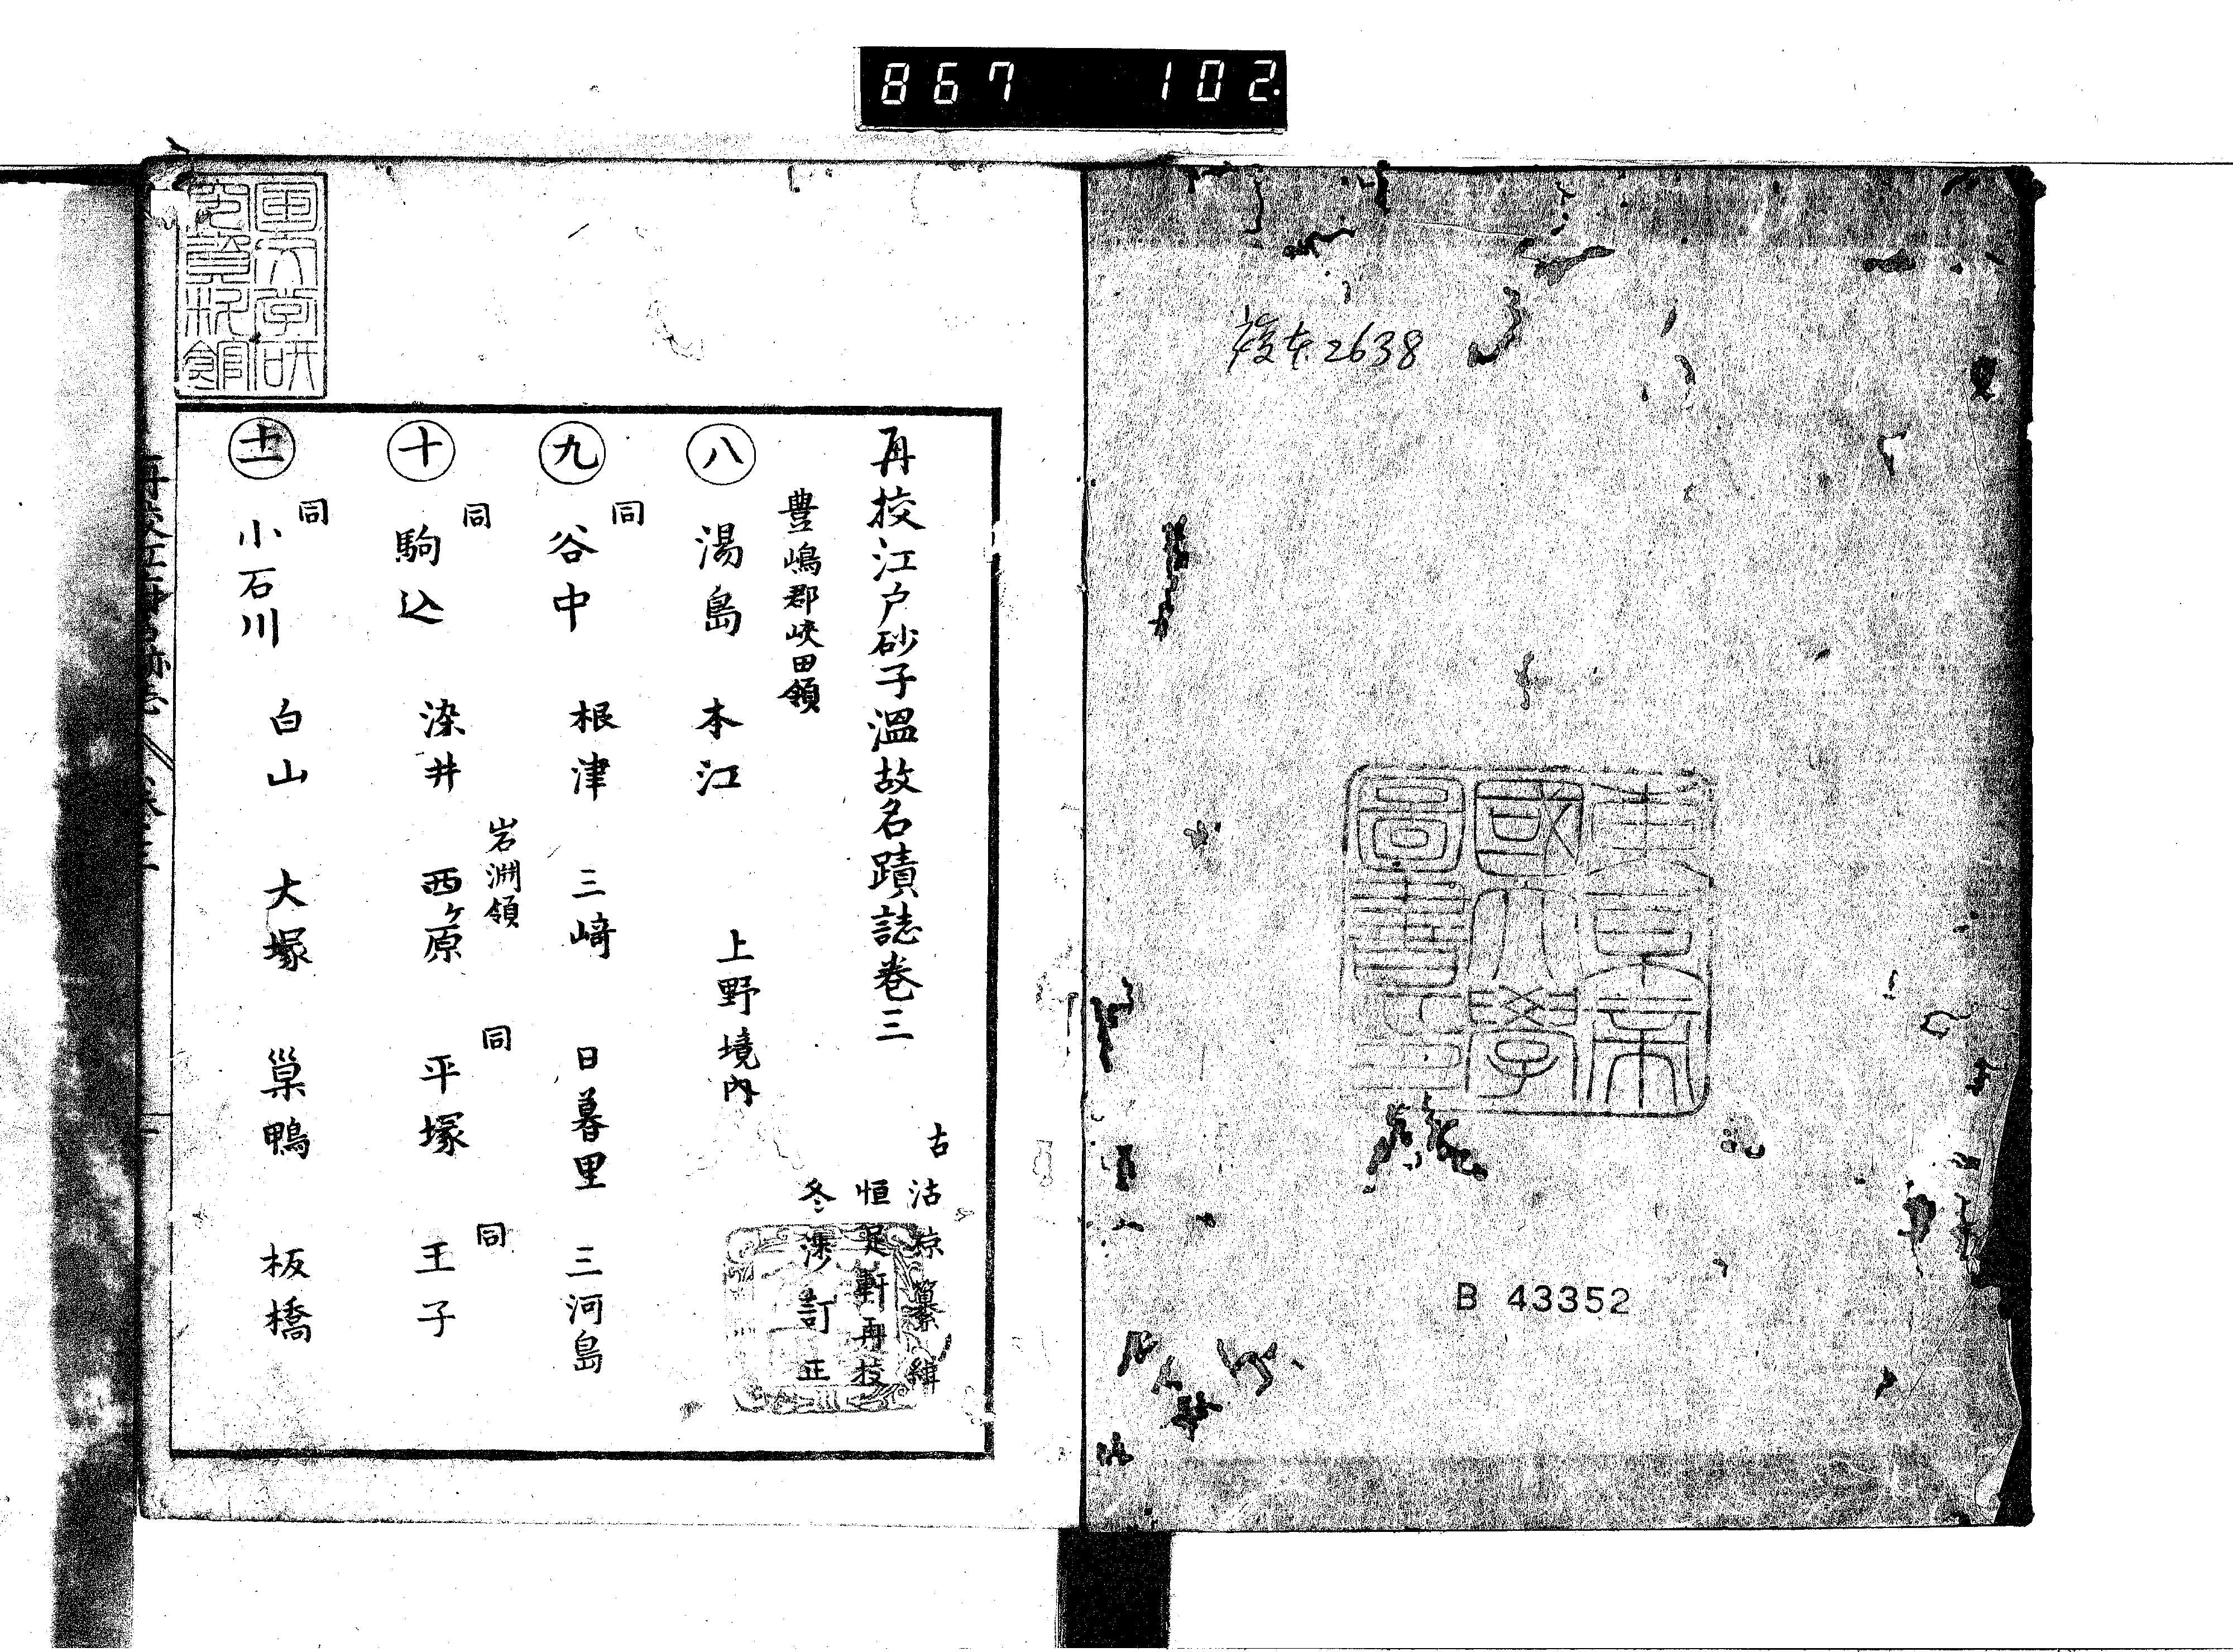 867 102.
複本2638
東京帝
國大學
圖書印
B 43352
再挍江戸砂子溫故名蹟誌巻三
古
沾凉纂緝
恒足軒再挍
冬渉訂正
豊嶋郡峡田領
八 湯島 本江 上野境内
同
九 谷中 根津 三崎 日暮里 三河島
同 岩淵領 同 同
十 駒込 染井 西ヶ原 平塚 王子
同
十一 小石川 白山 大塚 巣鴨 板橋
国文学研
究資料館